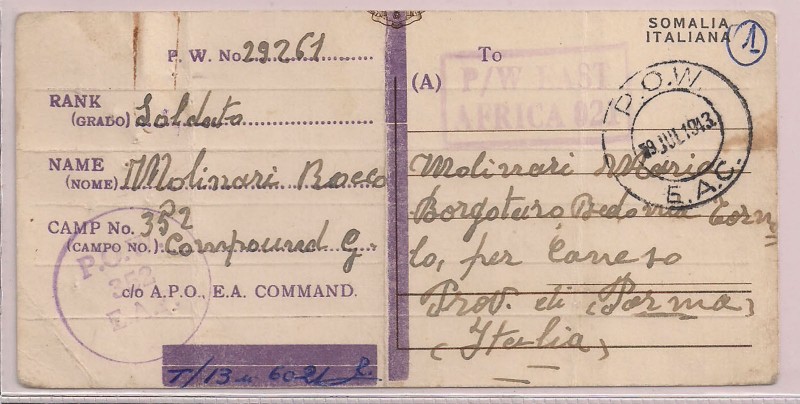 SOMALIA
ITALIANA
1
P. W. No. 29261
RANK
(GRADO) Soldato
NAME
(NOME) Molinari Rocco
CAMP No. 352
(CAMPO NO.) Compound G.
c/o A.P.O., E.A. COMMAND.
P.O.W.
E.A.
T/13
To
(A)
P/W EAST
AFRICA 02
P.O.W.
JUL 1943
E.A.C.
Molinari Maria
Borgotaro Bedonia
lo, per Caneso
Prov. di (Parma)
(Italia)